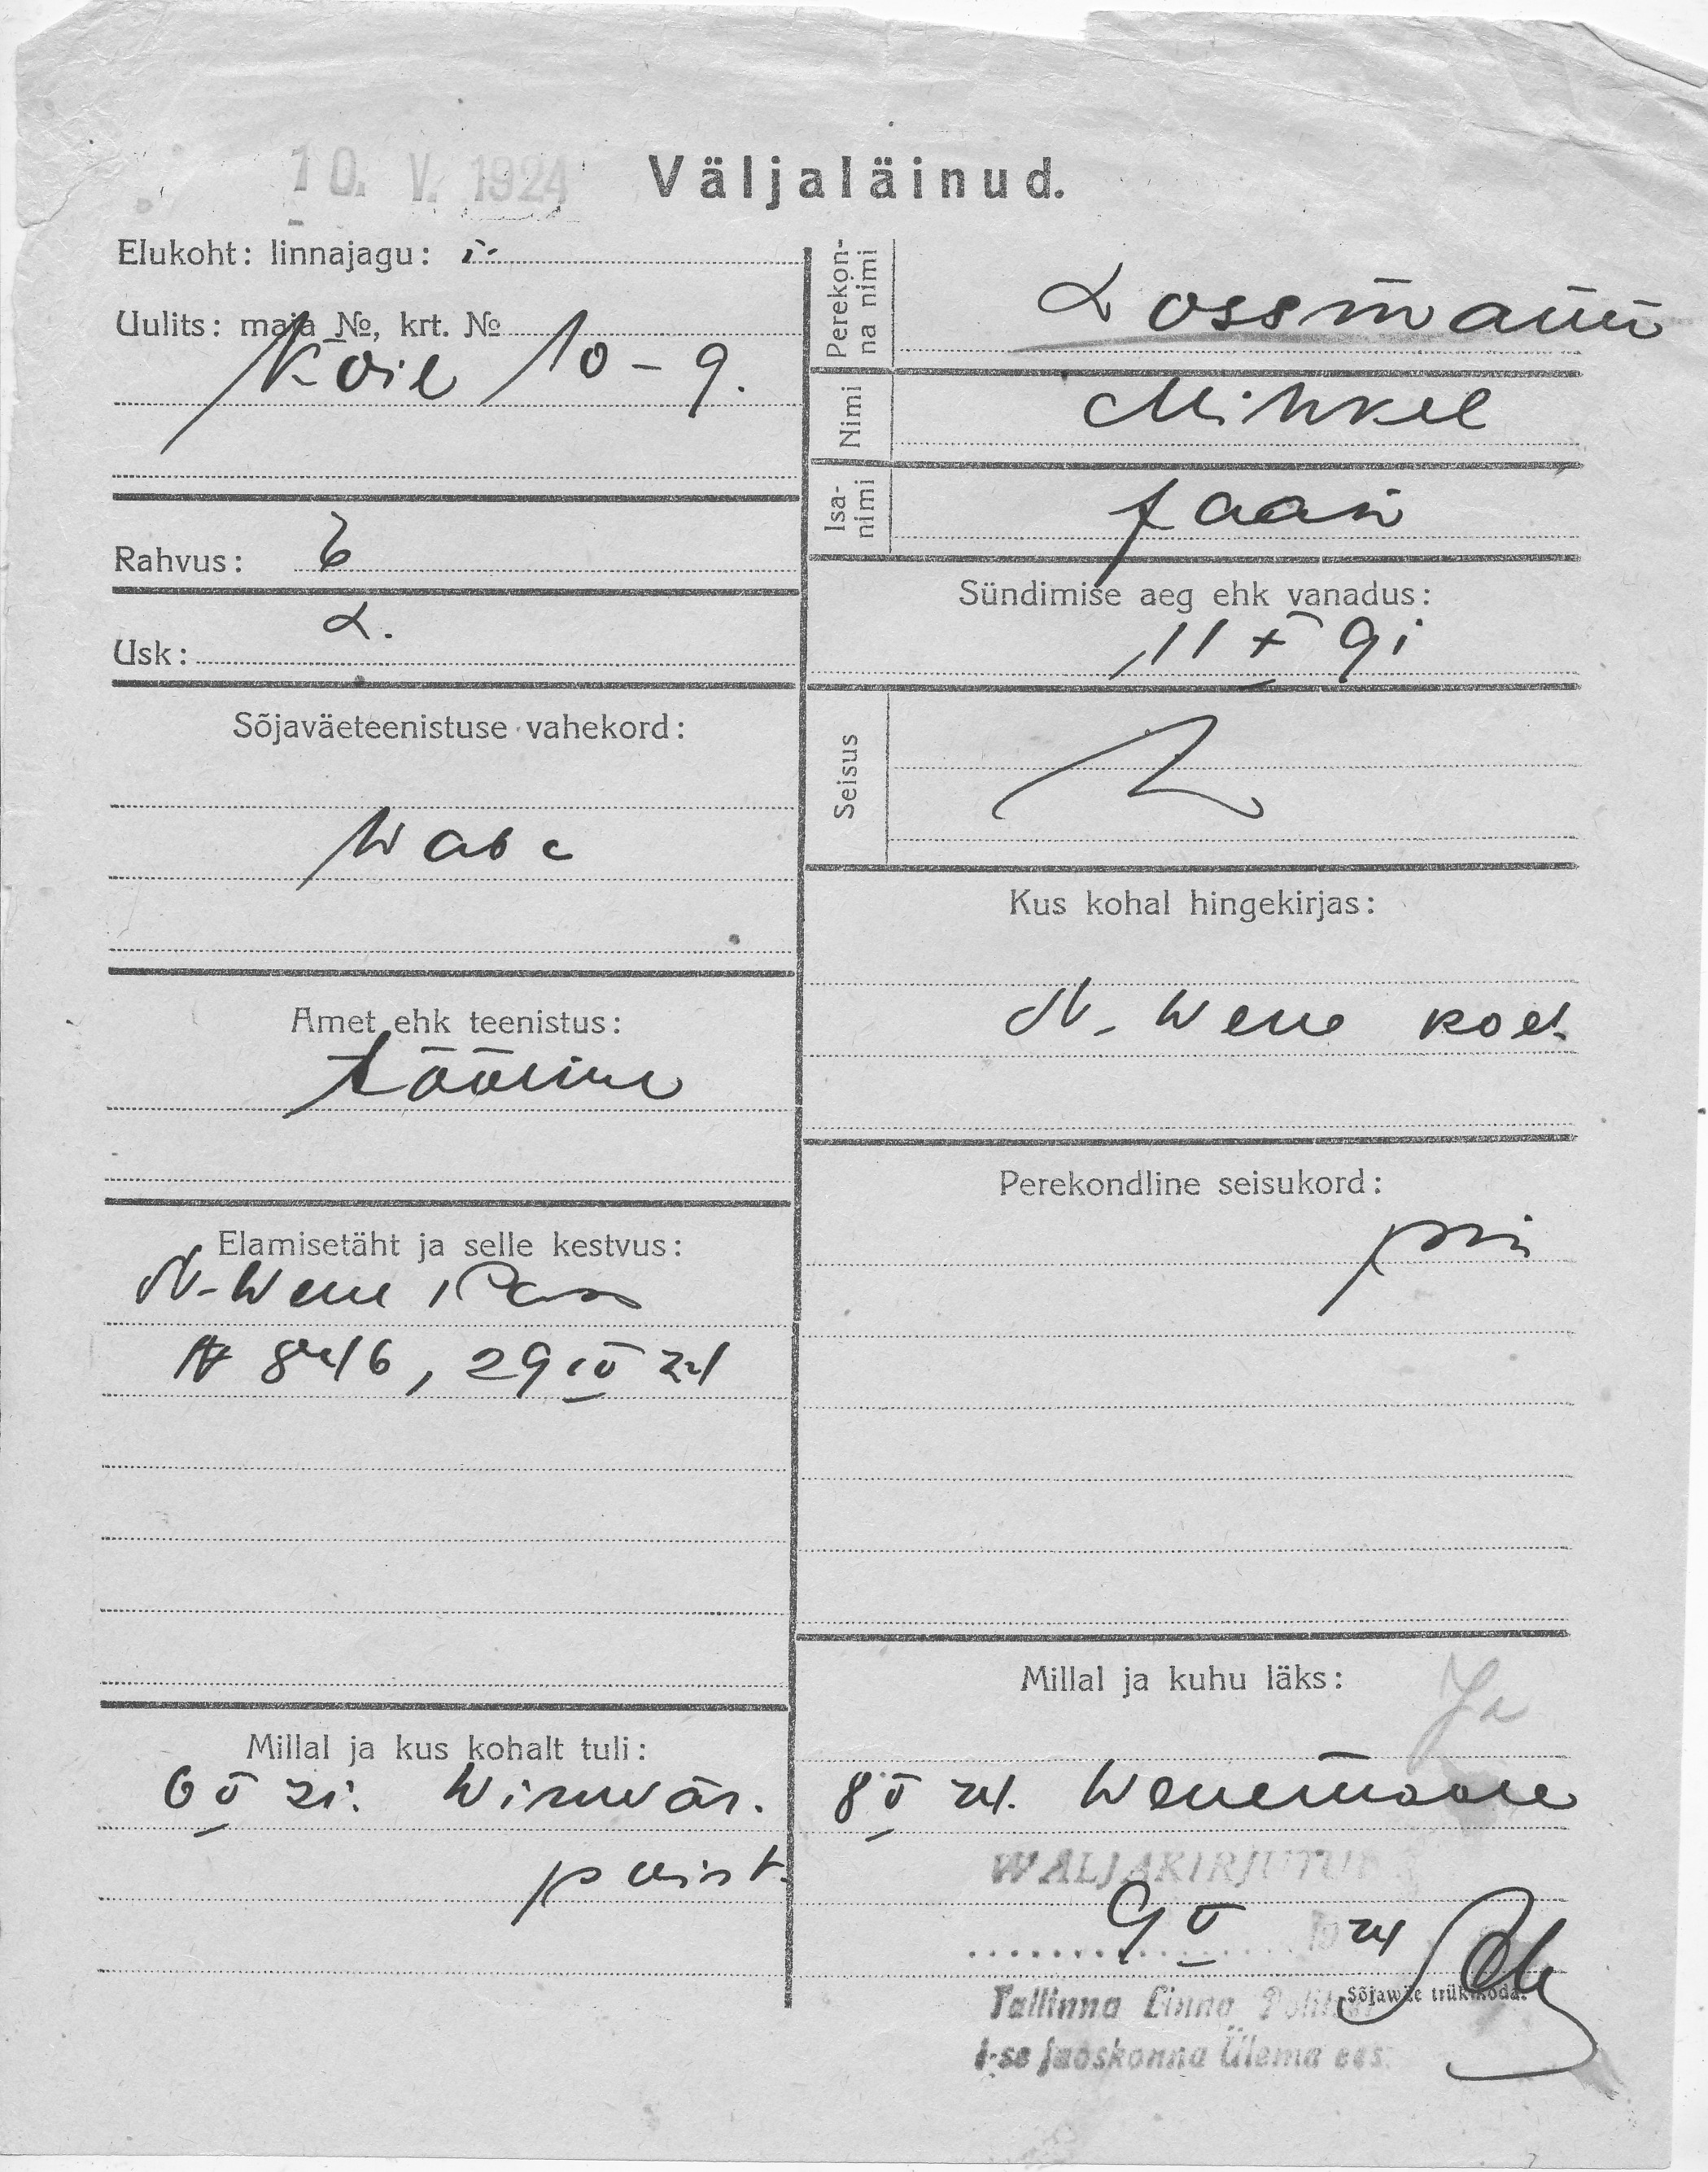 10. V. 1924
Väljaläinud.
Elukoht: linnajagu: I.
Uulits: maja №, krt. №
Koie 10-9.
Rahvus: E
Usk: L.
Sõjaväeteenistuse vahekord:
Waba
Amet ehk teenistus:
tööline
Elamisetäht ja selle kestvus:
N-Wene Pass
№ 8446, 29 IV 24
Millal ja kus kohalt tuli:
6 V 21. Wiruvär.
puist.
Perekon-
na nimi
Lossmann
Nimi
Mihkel
Isa-
nimi
Jaan
Sündimise aeg ehk vanadus:
11 X 91
Seisus
Kus kohal hingekirjas:
N. Wene kod.
Perekondline seisukord:
Millal ja kuhu läks:
8 V 24. Wenemaale
WÄLJAKIRJUTUD
9 V 24
Tallinna Linna Politsei
Sõjawäe trükikoda.
I-se jaoskonna Ülema ees.